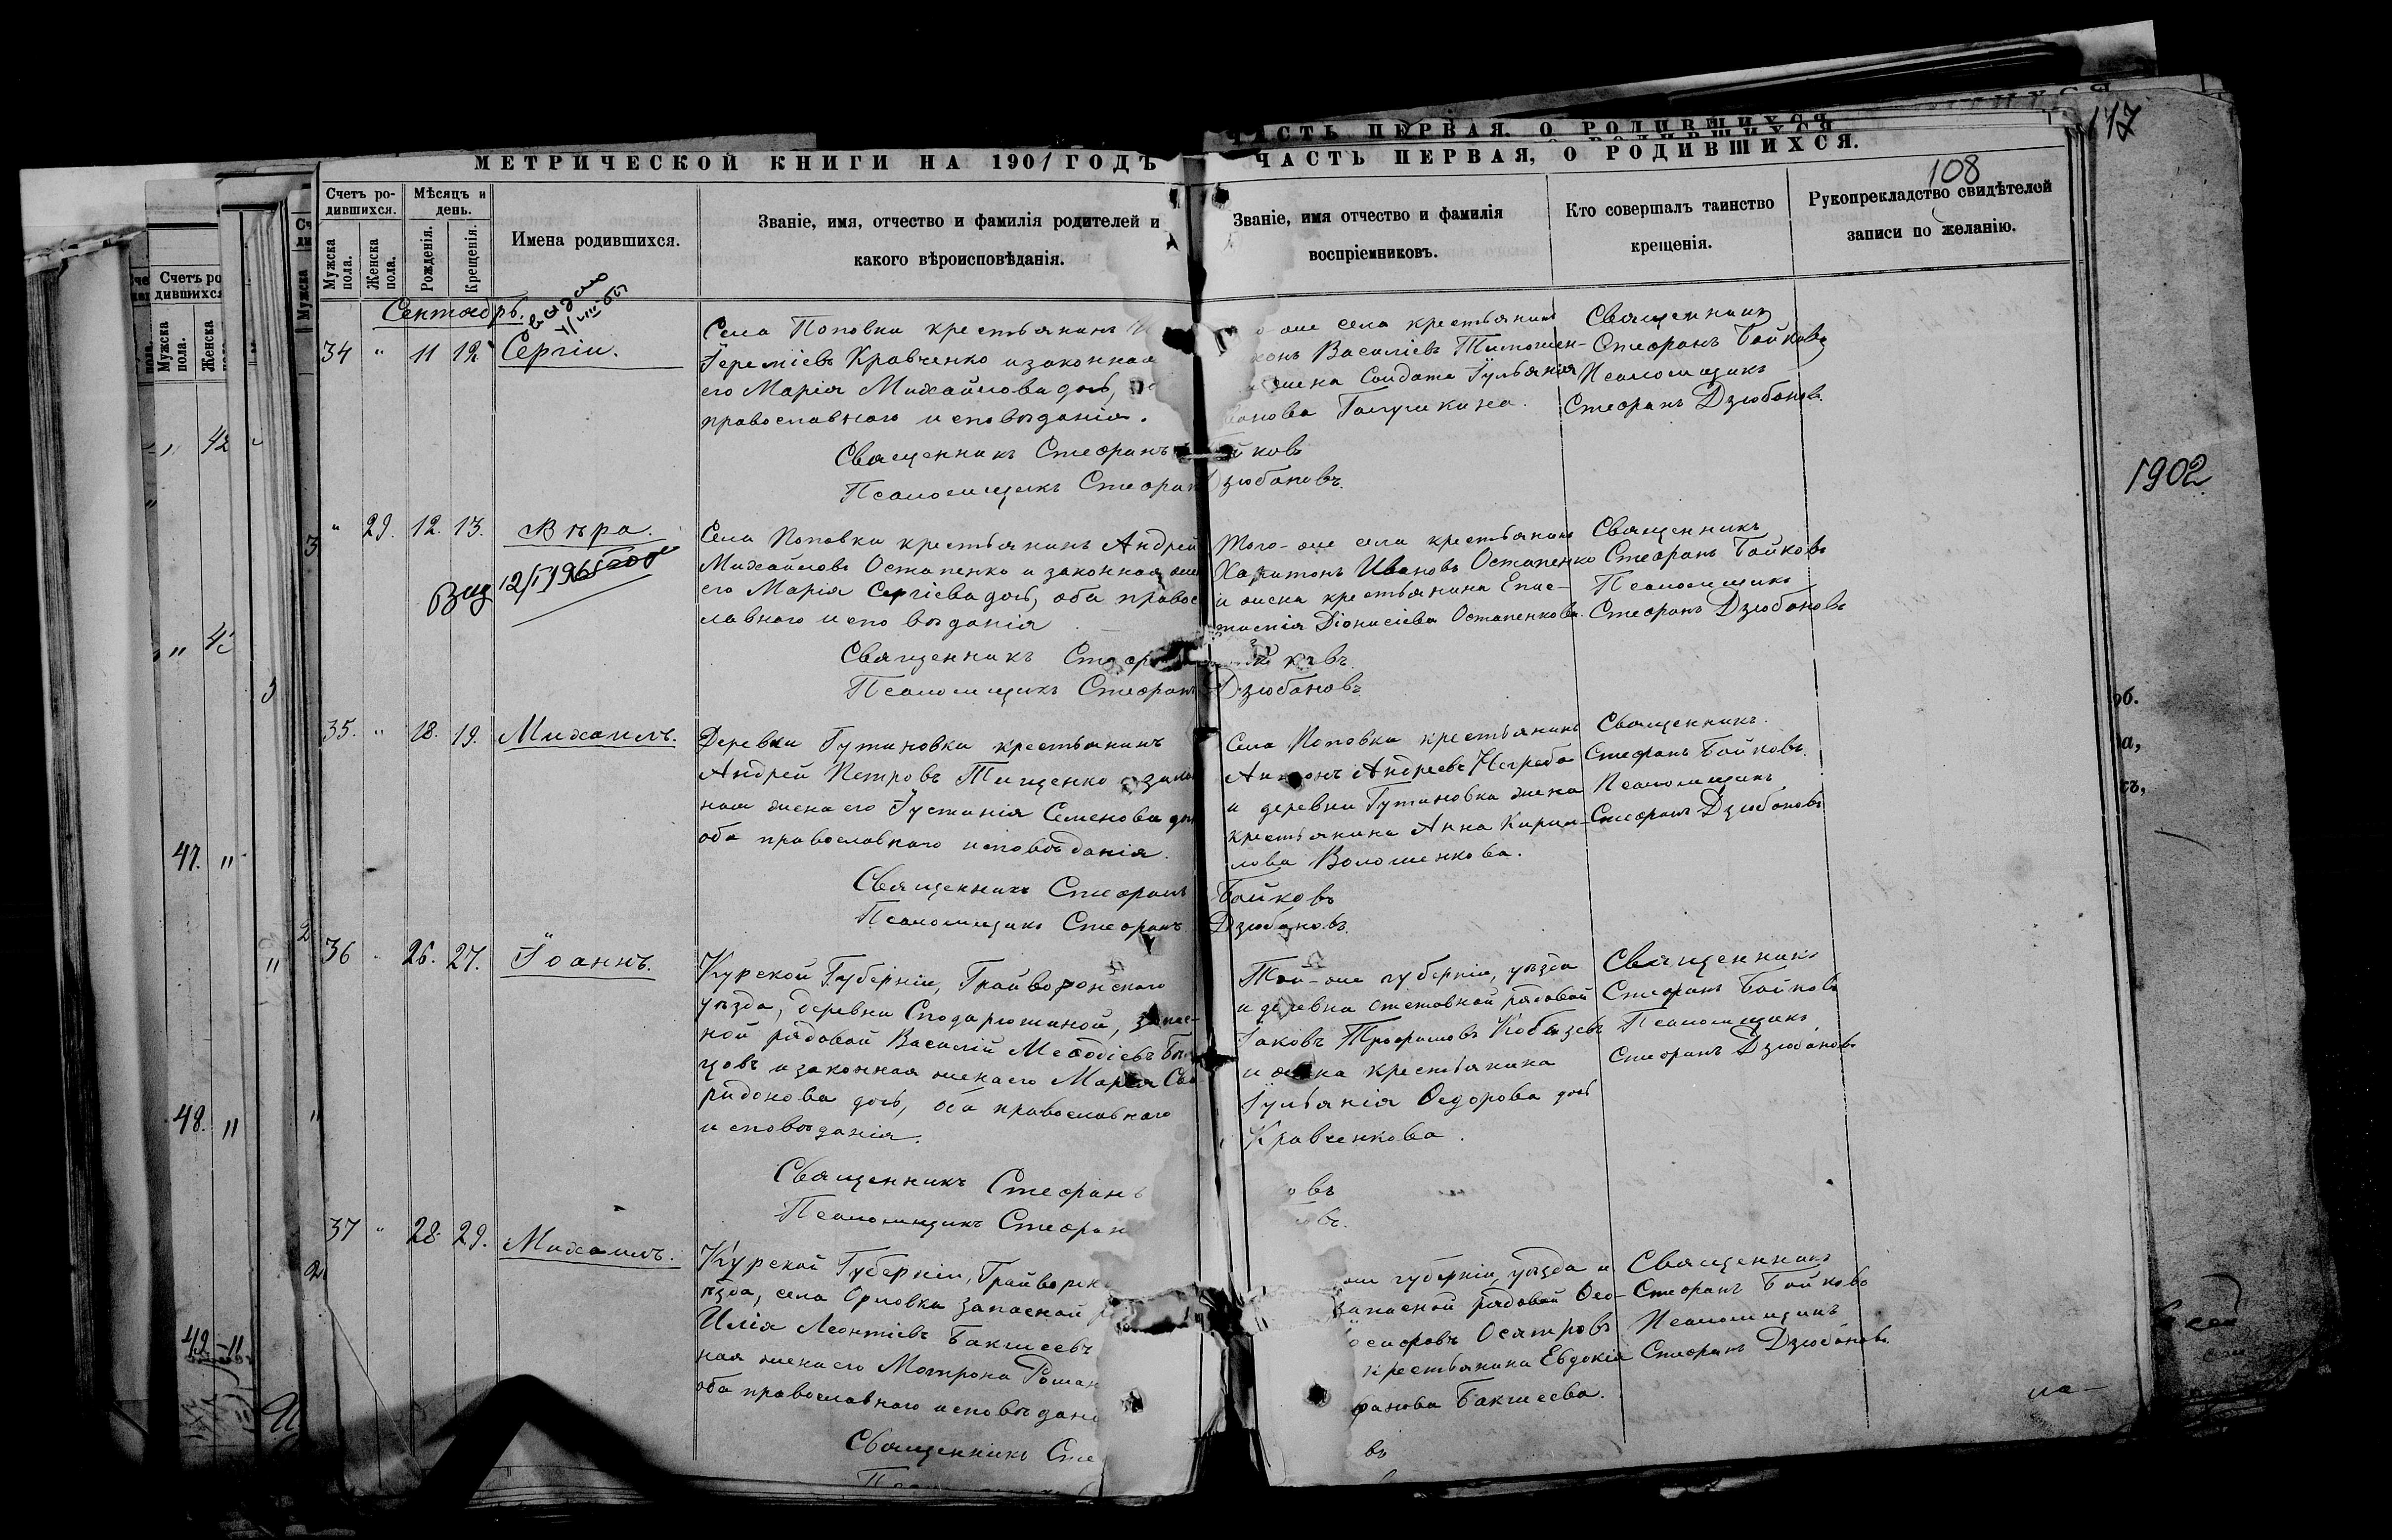 ЧАСТЬ ПЕРВАЯ. О РОДИВШИХСЯ
МЕТРИЧЕСКОЙ КНИГИ НА 1901 ГОДЪ
ЧАСТЬ ПЕРВАЯ, О РОДИВШИХСЯ.
117
108
Счетъ ро-
дившихся.
Мужска
пола.
Женска
пола.
Мѣсяцъ и
день.
Рожденія.
Крещенія.
Имена родившихся.
Званіе, имя, отчество и фамилія родителей и
какого вѣроисповѣданія.
Званіе, имя отчество и фамилія
воспріемниковъ.
Кто совершалъ таинство
крещенія.
Рукоприкладство свидѣтелей
записи по желанію.
Сентябрь.
34 " 11 12 Сергій.
Села Поповки крестьянинъ
Іереміевъ Кравченко и законная
его Марія Михайлова дочь,
православнаго исповѣданія.
Священникъ Стефанъ
Псаломщикъ Стефанъ Дзюбановъ.
же села крестьянинъ
Василіевъ Тимошен-
жена Солдата Іульянія
Галушкина.
Священникъ
Стефанъ Бойковъ
Псаломщикъ
Стефанъ Дзюбановъ
" 29. 12. 13. Вѣра.
12/I 1965
Села Поповки крестьянинъ Андрей
Михайловъ Остапенко и законная
его Марія Сергіева дочь, оба правос
лавнаго исповѣданія
Священникъ
Псаломщикъ Стефанъ Дзюбановъ
Того-же села крестьянинъ
Харитонъ Ивановъ Остапенко
и жена крестьянина Епис-
тимія Діонисіева Остапенкова.
Священникъ
Стефанъ Бойковъ
Псаломщикъ
Стефанъ Дзюбановъ
35. " 18. 19. Михаилъ.
Деревни Гутиновки крестьянинъ
Андрей Петровъ Тищенко и закон
ная жена его Іустинія Семенова
оба православнаго исповѣданія.
Священникъ Стефанъ Бойковъ
Псаломщикъ Стефанъ Дзюбановъ.
Села Поповки крестьянинъ
Андреевъ Негреба
и деревни Гутиновки жена
крестьянина Анна Кирил-
лова Волошенкова.
Священникъ.
Стефанъ Бойковъ.
Псаломщикъ
Стефанъ Дзюбановъ
36 " 26. 27. Іоаннъ.
Курской Губерніи, Грайворонскаго
уѣзда, деревни Сподарюшиной, запас-
ной рядовой Василій Меѳодіевъ
и законная жена его Марія Спи-
ридонова дочь, оба православнаго
исповѣданія.
Священникъ Стефанъ
Псаломщикъ Стефанъ
Той-же губерніи, уѣзда
и деревни отставной рядовой
Іаковъ Трофимовъ Кобызевъ
и жена крестьянина
Іульянія Ѳедорова дочь
Кравченкова.
Священникъ
Стефанъ Бойковъ
Псаломщикъ
Стефанъ Дзюбановъ
37 " 28. 29. Михаилъ.
Курской Губерніи, Грайворонск
уѣзда, села Орловки запасной
Илія Леонтіевъ Бакшеевъ
ная жена его Матрона Роман
оба православнаго исповѣдан
Священникъ Сте
губерніи, уѣзда и
запасной рядовой Ѳео-
Осятровъ
крестьянина Евдокія
Бакшеева.
Священникъ
Стефанъ Бойковъ
Псаломщикъ
Стефанъ Дзюбановъ
1902
Счетъ ро
дившихся
Мужска
пола.
Женска
42
47. "
48. "
49 "